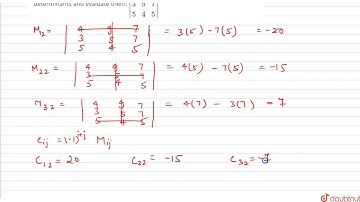 determinants and evaluate them: | 3 5 7 |
5 4 5
M12 = | 4 9 7 | = 3(5) - 7(5) = -20
3 5 7
5 4 5
M22 = | 4 9 7 | = 4(5) - 7(5) = -15
3 5 7
5 4 5
M32 = | 4 9 7 | = 4(7) - 3(7) = 7
3 5 7
5 4 5
Cij = (-1)^i+j Mij
C12 = 20 C22 = -15 C32 = -7
doubtnut